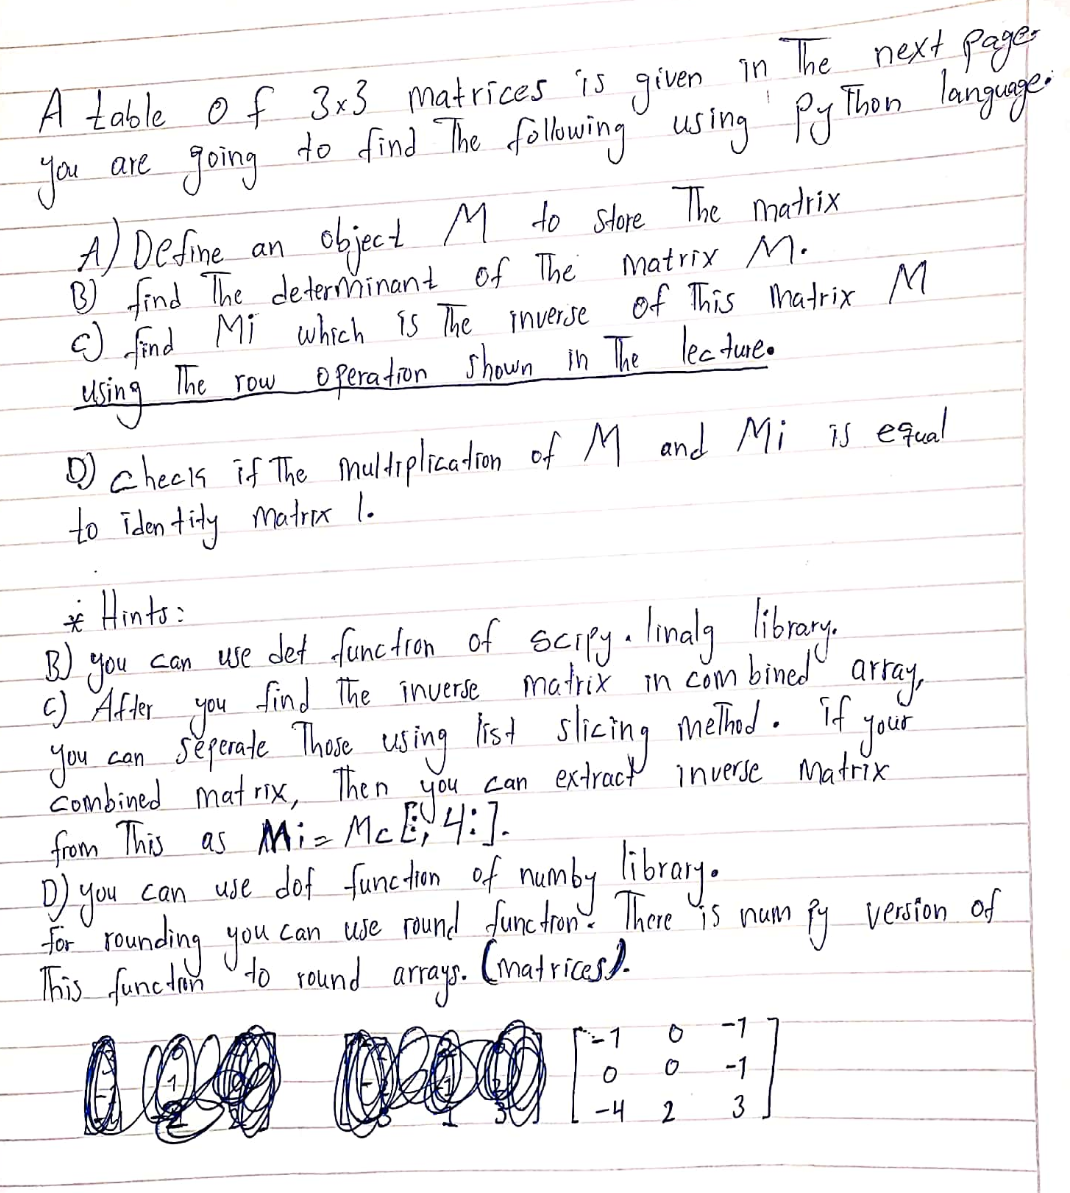 A table of 3x3 matrices is given in The next page.
you are going to find The following using PyThon language.
A) Define an object M to store The matrix
B) find The determinant of The matrix M.
C) find Mi which is The inverse of This matrix M
using The row operation shown in The lecture.
D) check if The multiplication of M and Mi is equal
to identity matrix I.
* Hints:
B) you can use det function of scipy.linalg library.
C) After you find The inverse matrix in combined array,
you can seperate Those using list slicing meThod. if your
combined matrix, Then you can extract inverse Matrix
from This as Mi = Mc[:, 4:].
D) you can use dof function of numby library.
for rounding you can use round function. There is num py version of
This function to round arrays. (matrices).
-1 0 -1
0 0 -1
-4 2 3